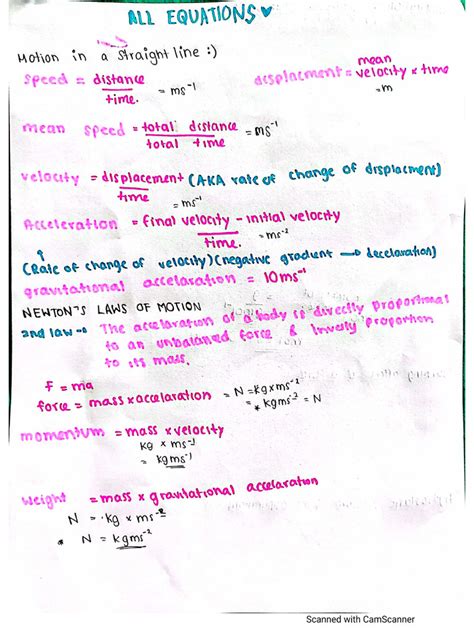 ALL EQUATIONS ♥
Motion in a straight line :)
speed = distance / time. = ms⁻¹
desplacment = mean velocity × time = m
mean speed = total distance / total time = ms⁻¹
velocity = displacement / time (AKA rate of change of displacment) = ms⁻¹
Acceleration = final velocity - initial velocity / time. = ms⁻²
(Rate of change of velocity) (negative gradient → decelaration)
gravitational acceleration = 10ms⁻¹
NEWTON'S LAWS OF MOTION
2nd law → The accelaration of a body is directly proportinal
to an unbalanced force & Inversly proportion
to its mass.
F = ma
force = mass × accelaration = N = kg × ms⁻²
* kgms⁻² = N
momentum = mass × velocity
kg × ms⁻¹
= kgms⁻¹
weight = mass × gravitational accelaration
N = kg × ms⁻²
* N = kgms⁻²
Scanned with CamScanner